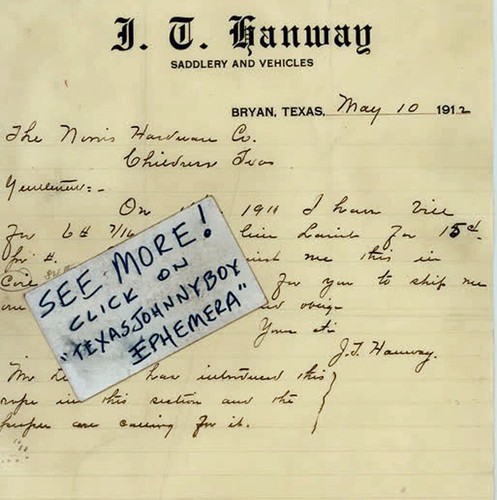 J. T. Hanway
SADDLERY AND VEHICLES
BRYAN, TEXAS, May 10 1912
The Norris Hardware Co.
Childress Texas
Gentlemen:-
On 1911 I have
for 6# 7/16 for 15¢
for #. me this in
for you to ship me
and oblige
Yours
J.T. Hanway.
Mr has introduced this
rope in this section and the
people are calling for it.
SEE MORE!
CLICK ON
"TEXASJOHNNYBOY
EPHEMERA"